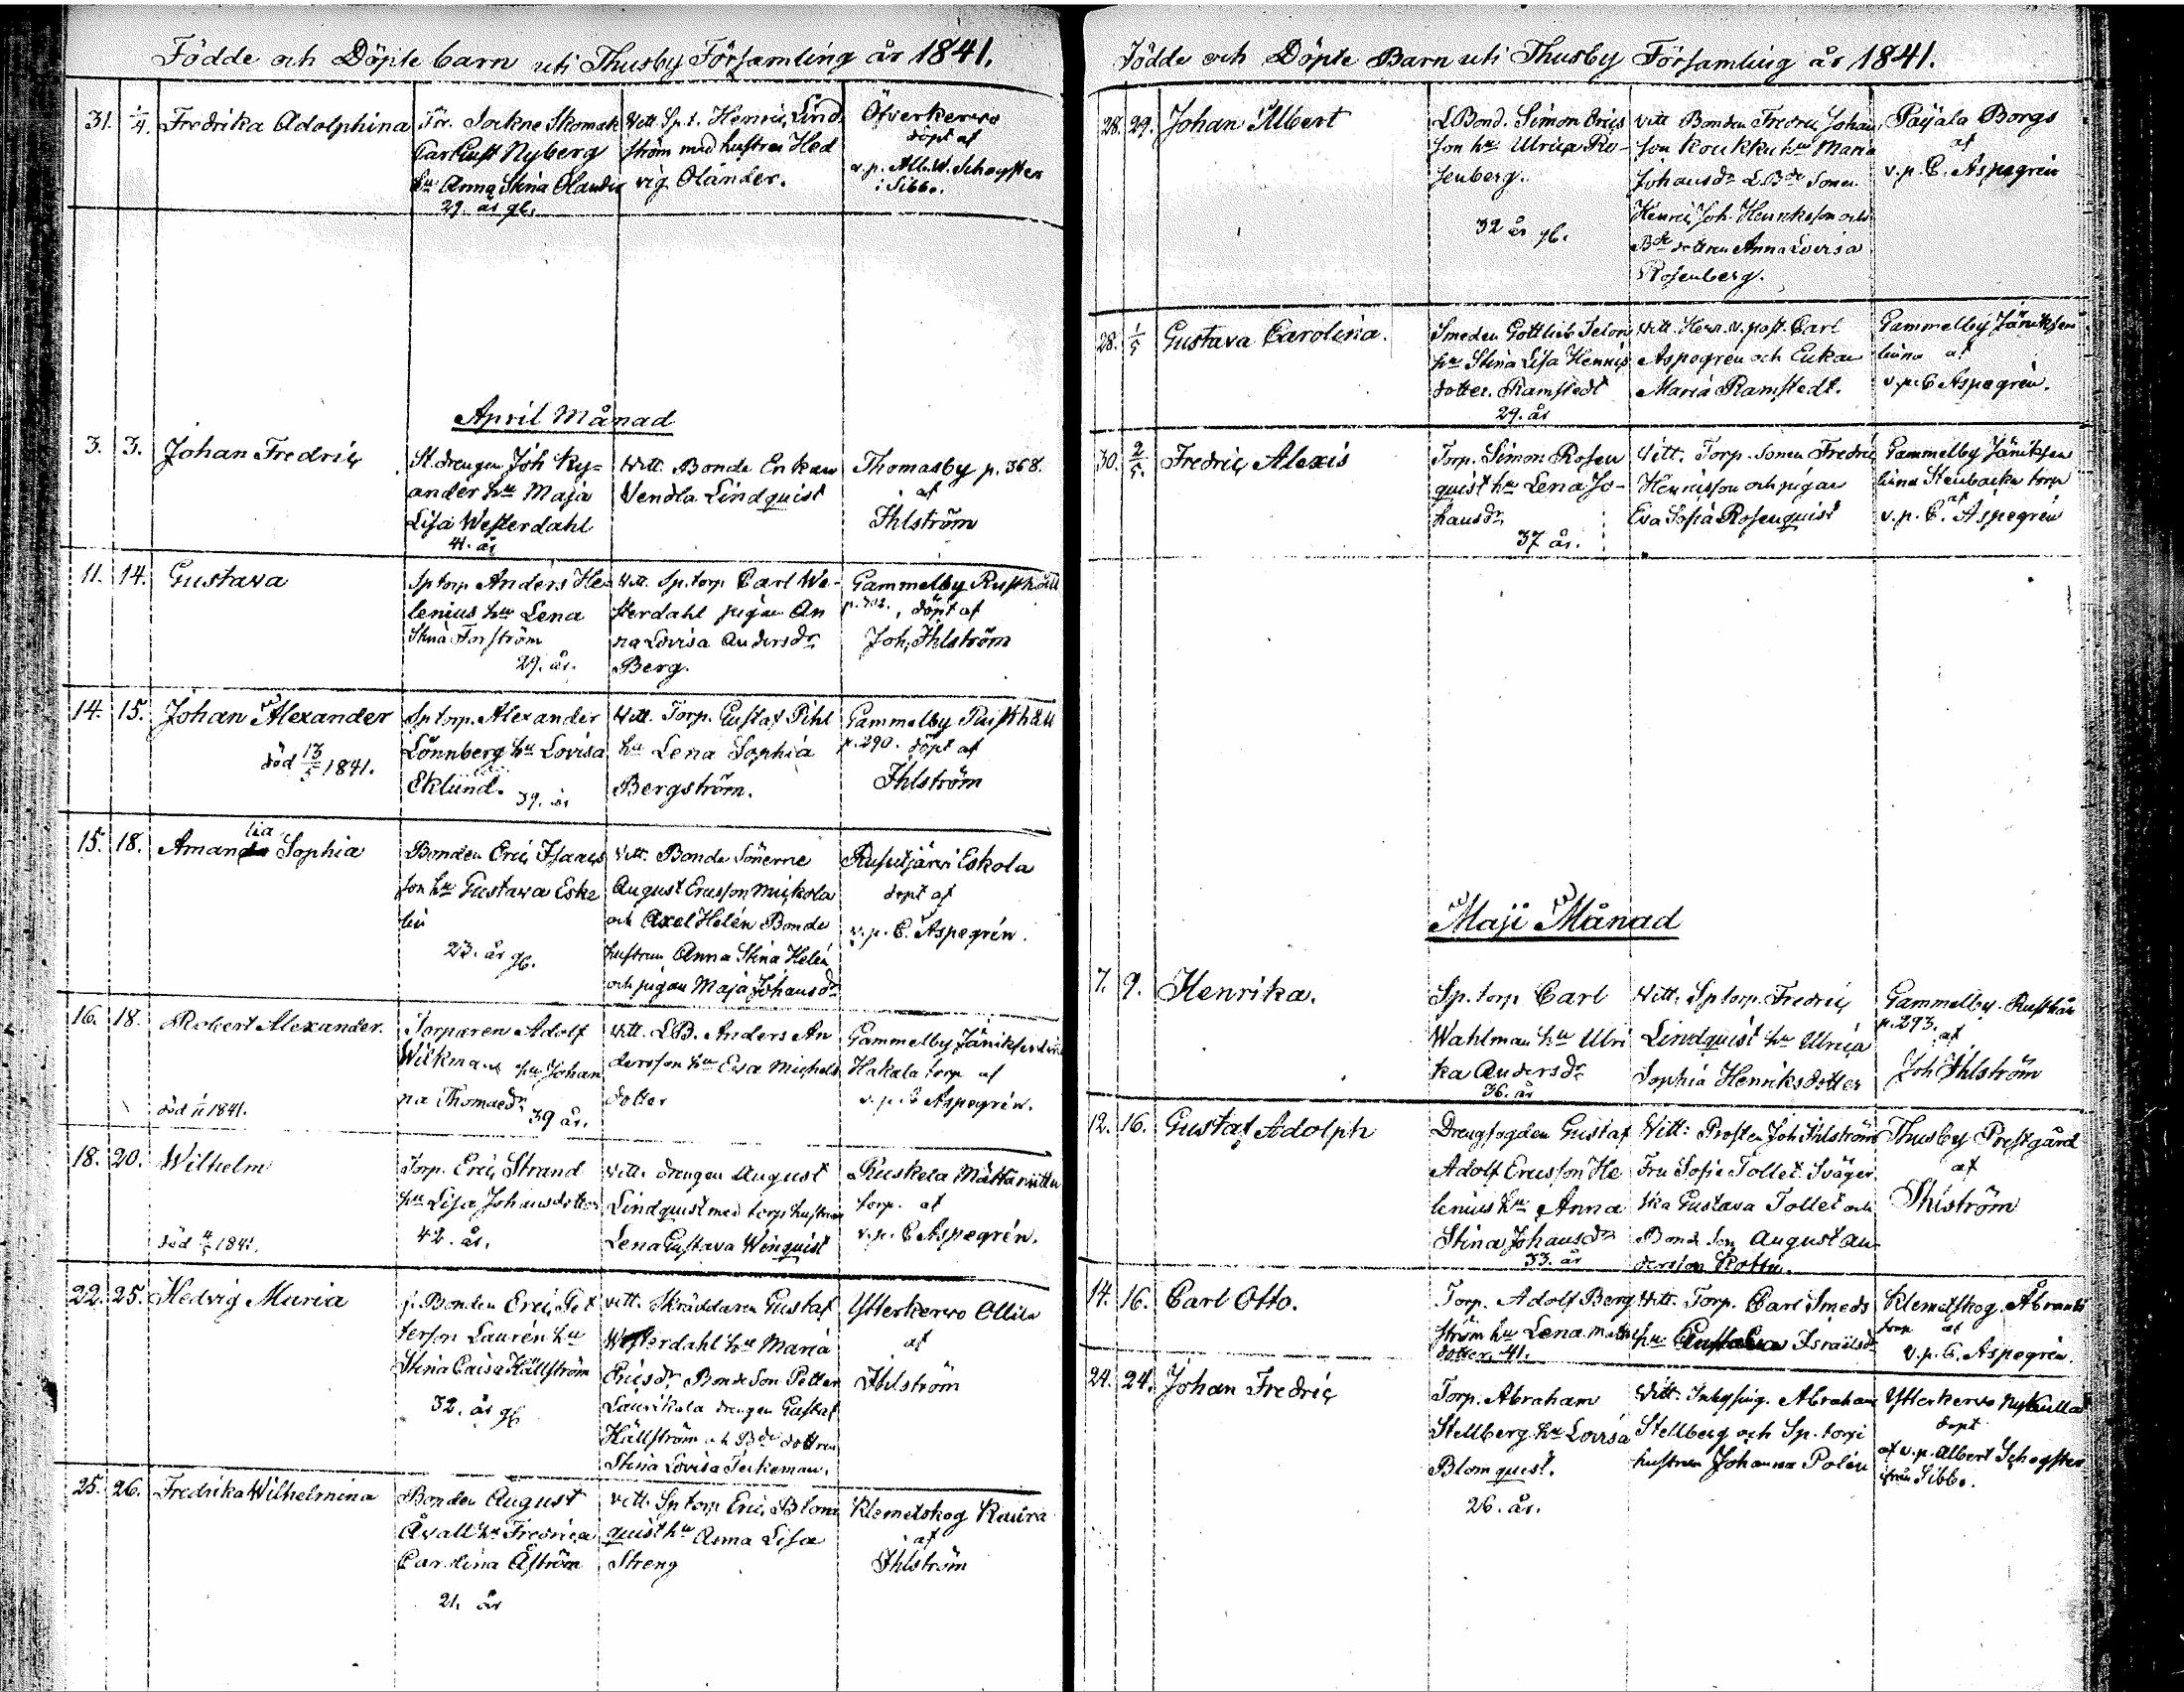 Födde och Döpte barn uti Thusby Församling år 1841.
31. 1/4. Fredrika Adolphina
Fr. Sockne Skomak
Carl Gust Nyberg
hu Anna Stina Olander
29. år gl.
Vitt. Sp.t. Henric Lind
ström med hustru Hed
vig Olander.
Öfverkervo
döpt af
v.p. Alb. W. Schogster
i Sibbo.
April Månad
3. 3. Johan Fredric
St. drengen Joh Ky=
ander hu Maja
Lisa Westerdahl
41. år
Witt. Bonde Enkan
Vendla Lindquist
Thomasby p. 368.
af
Ihlström
11. 14. Gustava
Sp torp Anders He
lenius hu Lena
Stina Forström
29. år.
Vitt. Sp. torp Carl We-
sterdahl pigan An
na Lovisa Andersdr
Berg.
Gammelby Rusthåll
p. 302. döpt af
Joh. Ihlström
14. 15. Johan Alexander
död 13/5 1841.
Sp torp. Alexander
Lönnberg hu Lovisa
Eklund. 39. år
Vitt. Torp. Gustaf Pihl
hu Lena Sophia
Bergström.
Gammelby Rusthåll
p. 290. döpt af
Ihlström
15. 18. Amanda Sophia
lia
Bonden Eric Isaacs
son hu Gustava Eske
lin
23. år gl.
Vitt. Bonde Sönerne
August Ericsson Mickola
och Axel Helén Bonde
hustrun Anna Stina Helén
och pigan Maja Johansdr
Rusutjärvi Eskola
döpt af
v.p. C. Aspegrén.
16. 18. Robert Alexander.
död 1841.
Torparen Adolf
Wikman hu Johan
na Thomaedr
39 år.
Vitt. LB. Anders An
dersson hu Eva Michels
dotter
Gammelby Jäniksenlinna
Hakala torp af
v.p. C Aspegrén.
18. 20. Wilhelm
död 1841.
Torp. Eric Strand
hu Lisa Johansdotter
42. år.
Vitt. drengen August
Lindquist med torp hustrun
Lena Gustava Winquist
Ruskela Mättäniittu
torp. af
v.p. C Aspegrén.
22. 25. Hedvig Maria
f. Bonden Eric Pet
tersson Laurén hu
Stina Caisa Hällström
32. år gl
Vitt. Skräddaren Gustaf
Westerdahl hu Maria
Ericsdr Bonde Son Petter
Laurikala drengen Gustaf
Hällström och Bde dottren
Stina Lovisa Teckeman.
Ytterkervo Ollila
af
Ihlström
25. 26. Fredrika Wilhelmina
Bonden August
Åvall hu Fredrica
Carolina Åström
21. år
Vitt. Sp torp Eric Blom
quist hu Anna Lisa
Streng
Klemetskog Kaura
af
Ihlström
Födde och Döpte Barn uti Thusby Församling år 1841.
28. 29. Johan Albert
L Bond. Simon Erics
son hu Ulrica Ro-
senberg.
32 år gl.
Vitt Bonden Fredric Johan
son Koukku hu Maria
Johansdr L. Bde Sonen
Henric Joh. Henriksson och
Bde dottren Anna Lovisa
Rosenberg.
Pajala Borgs
af
v.p. C. Aspegrén
28. 1/5 Gustava Carolina.
Smeden Gottlieb Telon
hu Stina Lisa Henrics
dotter. Ramstedt
29. år
Vitt. Herr. v. past. Carl
Aspegren och Enkan
Maria Ramstedt.
Gammelby Jäniksen
linna af
v.p. C Aspegrén.
30. 2/5. Fredric Alexis
Torp. Simon Rosen
quist hu Lena Jo-
hansdr
37 år.
Vitt. Torp. Sonen Fredric
Henricsson och pigan
Eva Sofia Rosenquist
Gammelby Jäniksen
linna Stenbacka torp
af
v.p. C. Aspegrén
Maji Månad
7. 9. Henrika.
Sp. torp Carl
Wahlman hu Ulri
ka Andersdr
36. år
Vitt. Sp torp. Fredric
Lindquist hu Ulrica
Sophia Henriksdotter
Gammelby Rusthål
p. 293. af
Joh Ihlström
12. 16. Gustaf Adolph
Drengfogden Gustaf
Adolf Ericsson He
lenius hu Anna
Stina Johansdr
33. år
Vitt: Prosten Joh Ihlström
Fru Sofie Tollet. Sväger
ska Gustava Tollet och
Bonde Son August An
dersson Rottu.
Thusby Prestgård
af
Ihlström
14. 16. Carl Otto.
Torp. Adolf Berg
ström hu Lena Matts
dotter. 41.
Vitt. Torp. Carl Smeds
hu Gustava Israelsdr
Klemetskog. Åbrant
torp af
v.p. C. Aspegrén.
24. 24. Johan Fredric
Torp. Abraham
Stellberg hu Lovisa
Blomquist.
26. år.
Vitt. Inhysing. Abraham
Stellberg och Sp. torp
hustrun Johanna Polén
Ytterkervo Nykulla
döpt
af v.p. Albert Schogster
ifrån Sibbo.